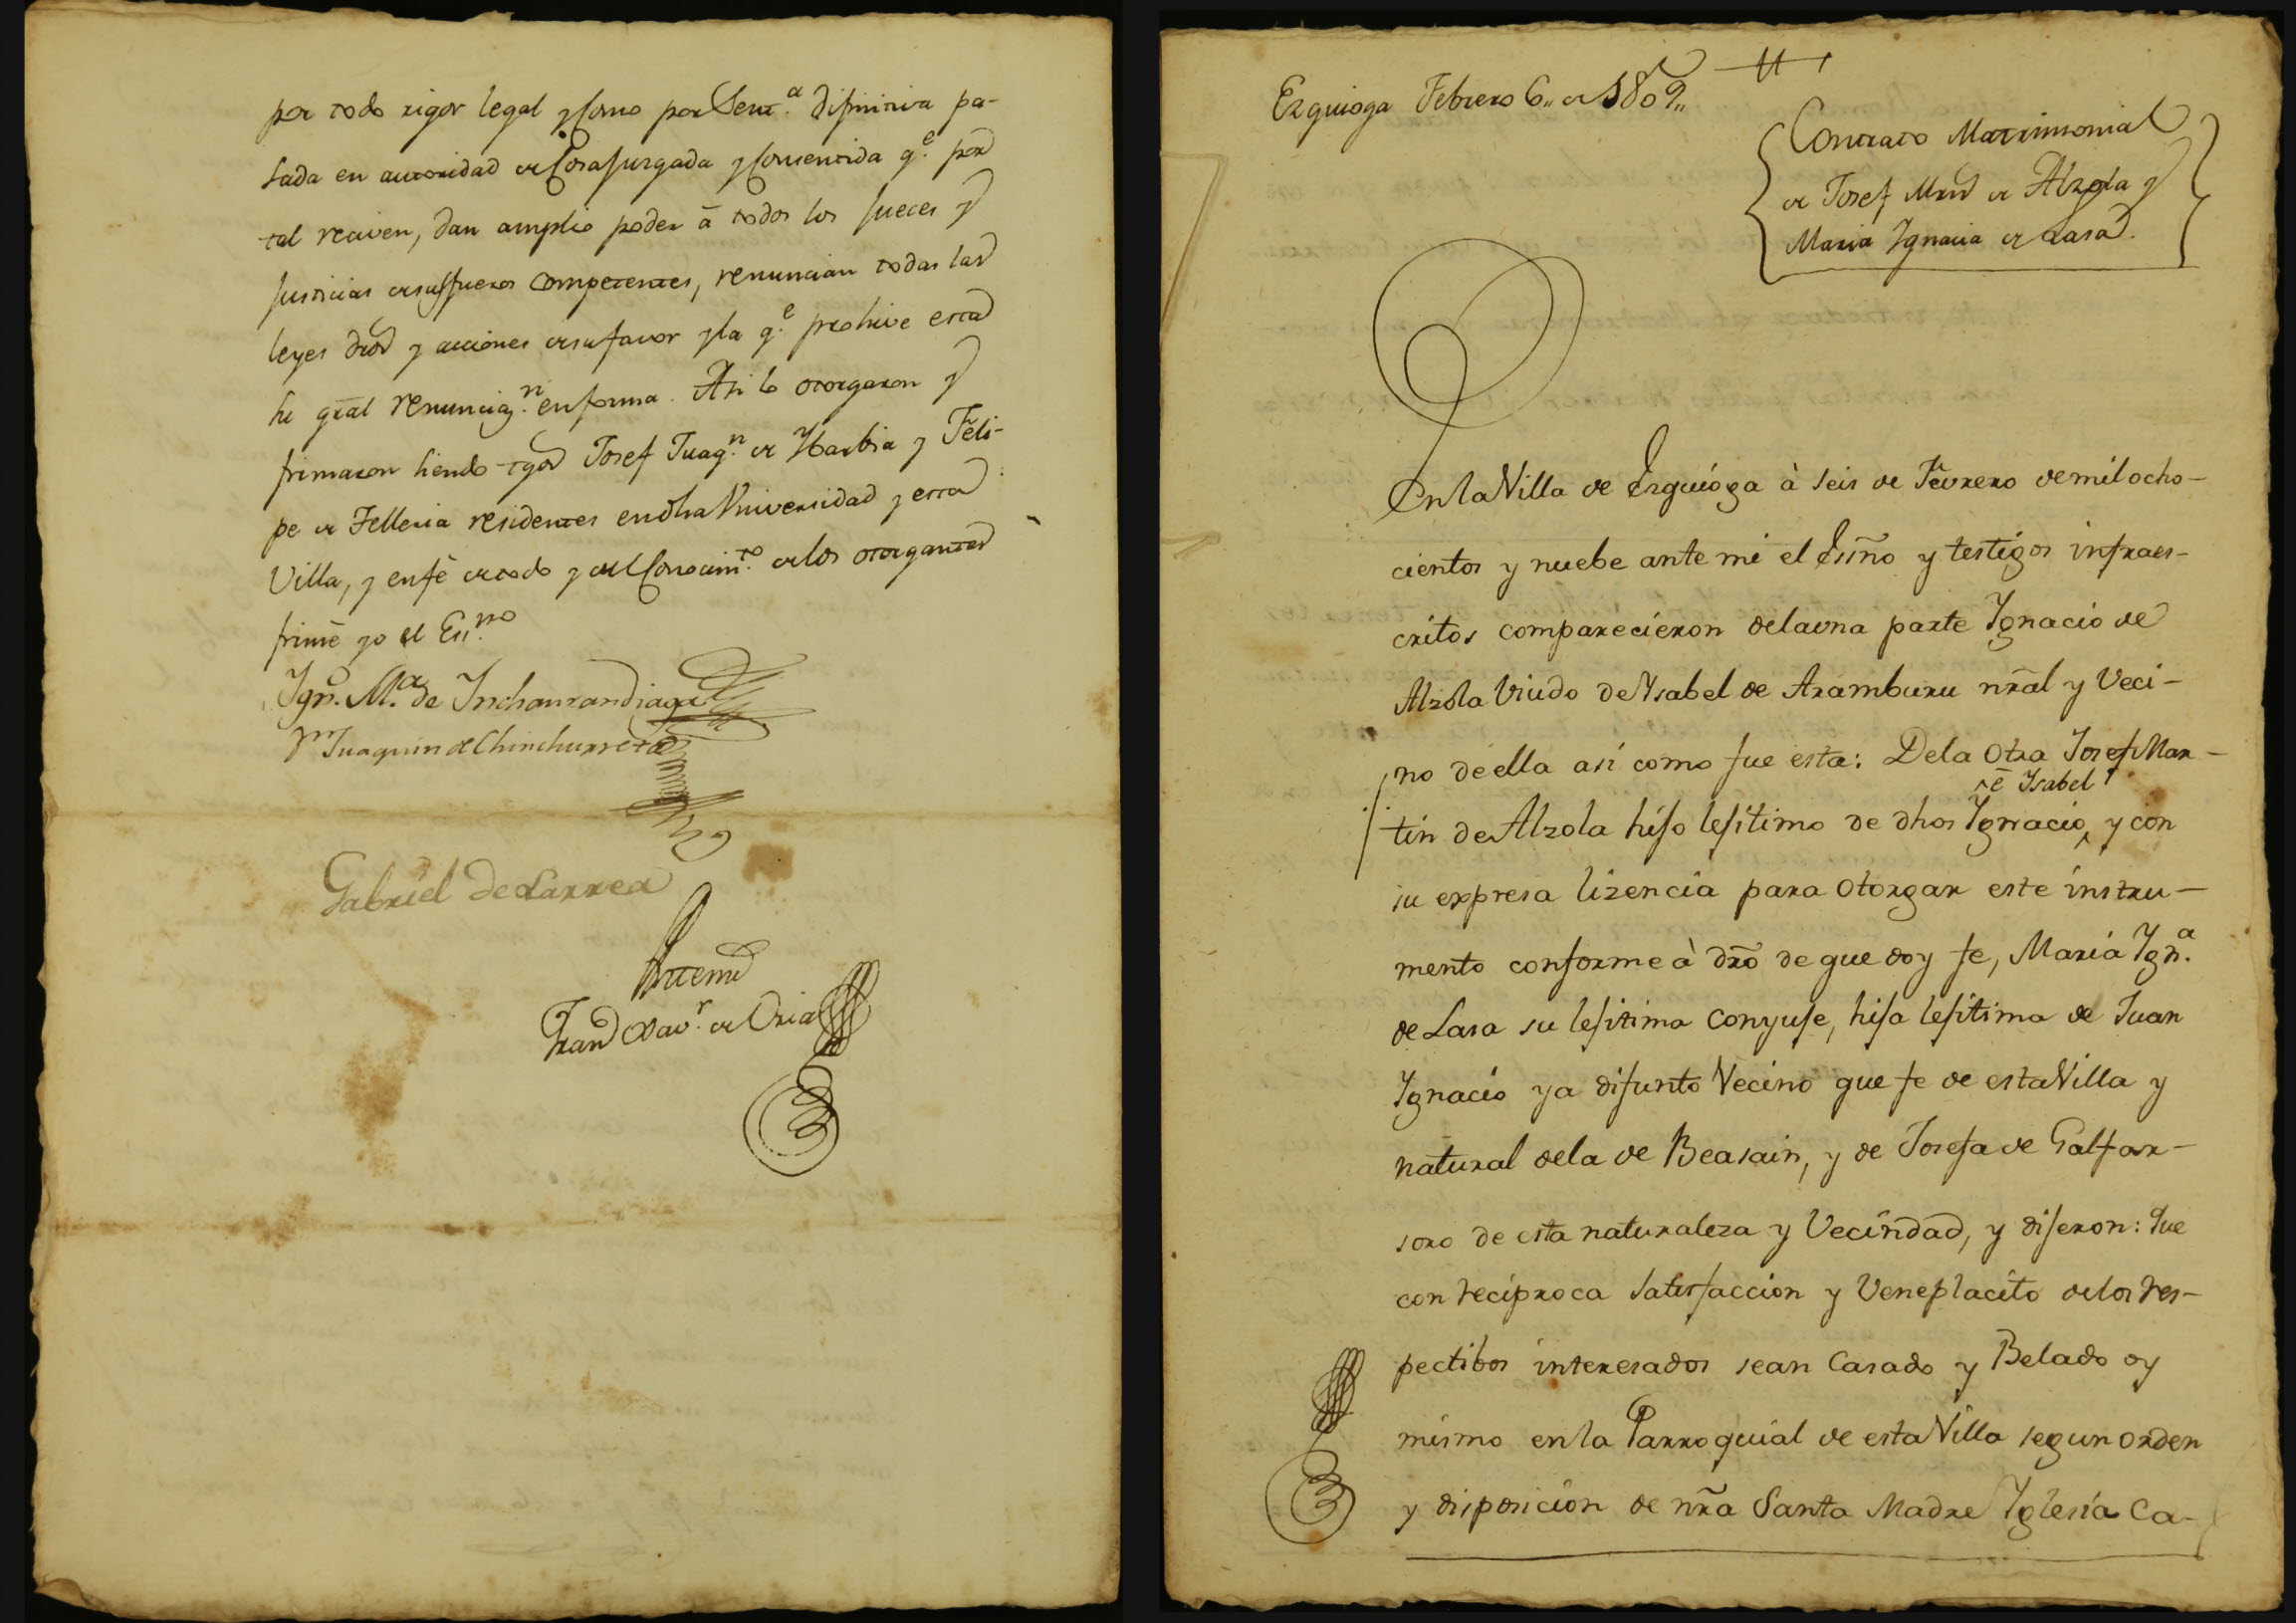 por todo rigor legal y como por Sent.ª difinitiva pa-
sada en autoridad de Cosa Jurgada y Consentida q.e por
tal reciven, dan amplio poder â todos los Jueces y
Justicias de sus fueros Competentes, renuncian todas las
leyes dros y acciones de su favor y la q.e prohive esta
he gral renunciaz.n en forma. Asi lo otorgaron y
firmaron siendo tgos Josef Juaq.n de Ybarbia y Feli-
pe de Telleria residentes en dha Vniversidad y esta
Villa, y en fè de todo y del Conocim.to de los otorgantes
firmè yo el Es.no
Ign.o M.a de Inchaurandiaga
Juaquin de Chinchurreta
Gabriel de Larrea
Antemi
Fran.co Xav.r de Oria
Ezquioga Febrero 6,, de 1809,,
Contrato Matrimonial
de Josef Mrn de Alzola y
Maria Ygnacia de Lasa.
En la Villa de Ezquioga à seis de Fevrero de mil ocho-
cientos y nuebe ante mi el Esñõ y testigos infraes-
critos comparecieron de la vna parte Ygnacio de
Alzola Viudo de Ysabel de Aramburu nr̃al y Veci-
no de ella asi como fue esta: De la Otra Josef Mar-
è Ysabel
tin de Alzola hijo lejitimo de dhos Ygnacio, y con
su expresa lizencia para Otorgar este instru-
mento conforme à dr̃o de que doy fe, Maria Ygn.ª
de Lasa su lejitima conyuje, hija lejitima de Juan
Ygnacio ya difunto Vecino que fe de esta Villa y
natural de la de Beasain, y de Josefa de Galfar-
soro de esta naturaleza y Vecindad, y dijeron: Que
con reciproca Satisfaccion y Veneplacito de los res-
pectibos interesados sean Casado y Belado oy
mismo en la Parroquial de esta Villa segun orden
y disposicion de nr̃a Santa Madre Yglesia Ca-